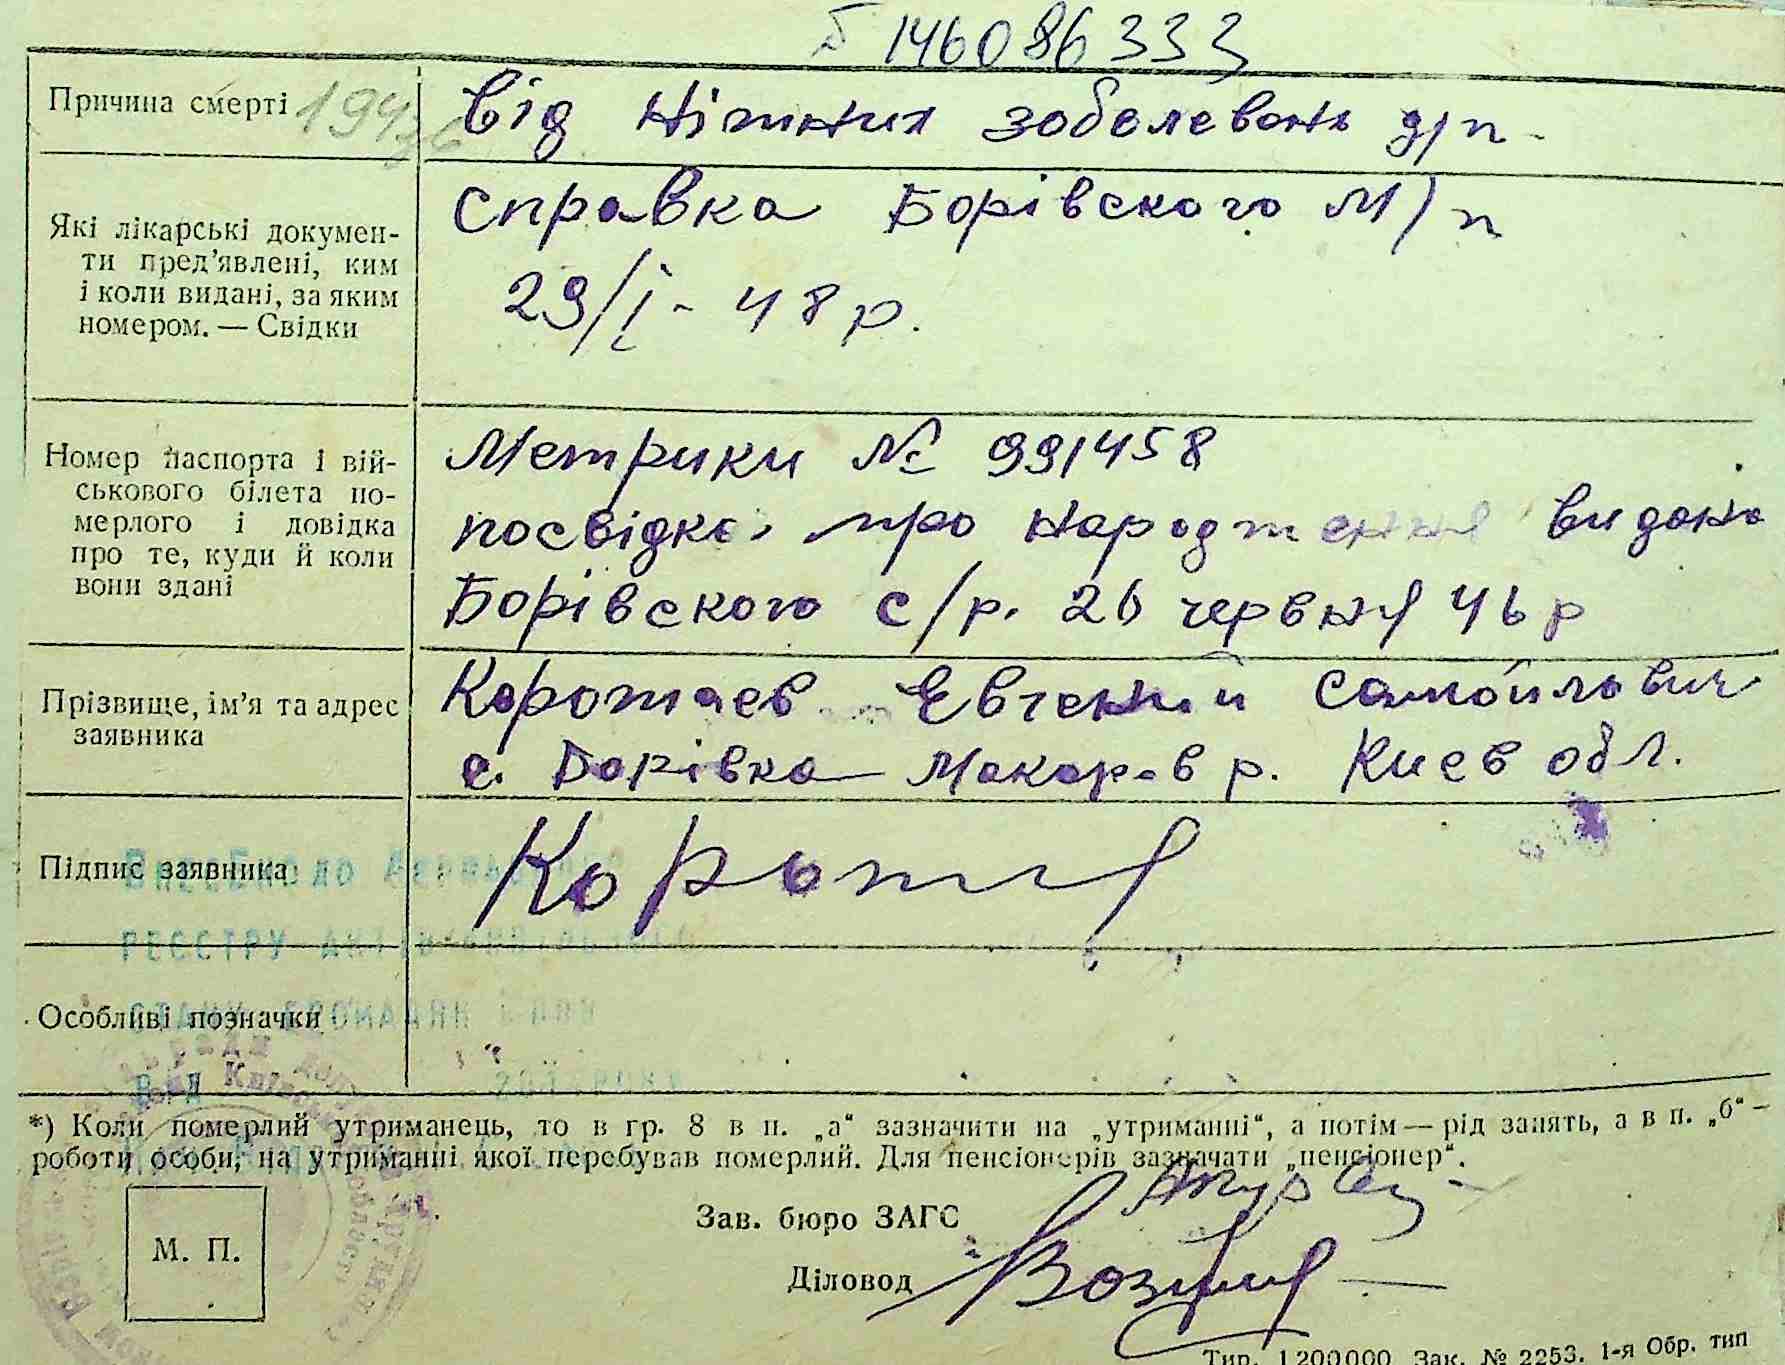 146086333
Причина смерті
від літних заболевань д/п -
Які лікарські докумен-
ти пред'явлені, ким
і коли видані, за яким
номером. — Свідки
справка Борівского М/п
29/I - 48 р.
Номер паспорта і вій-
ськового білета по-
мерлого і довідка
про те, куди й коли
вони здані
Метрики № 991458
посвідка про народження видана
Борівского с/р. 26 червня 46 р
Прізвище, ім'я та адрес
заявника
Коротаев Евгений Самойлович
с. Борівка Макаров р. Киев обл.
Підпис заявника
Особливі позначки
*) Коли померлий утриманець, то в гр. 8 в п. „а“ зазначити на „утриманні“, а потім — рід занять, а в п. „б“ –
роботи особи, на утриманні якої перебував померлий. Для пенсіонерів зазначати „пенсіонер“.
Зав. бюро ЗАГС
М. П.
Діловод
Тир. 1 200 000. Зак. № 2253. 1-я Обр. тип